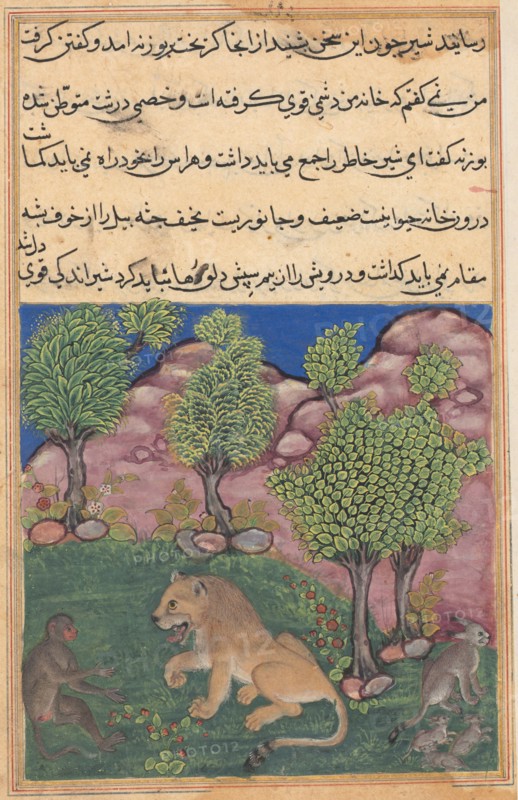 رسانید شیر چون این سخن بشنید از انجا کریخت بر بوزنه امد و کفتن کرفت
من نمی کفتم که خانه من دشمنی قوی کرفته است و خصمی درشت متوطن شده
بوزنه کفت ای شیر خاطر را جمع می باید داشت و هراس را بخود راه نمی باید کماشت
درون خانه جوانیست ضعیف و جانوریست نحیف جثه پیل را از خوف پشه
مقام نمی باید کذاشت و درویش را از بیم سپش شاید کرد شیر اندکی قوی دل شد
PHOTO12